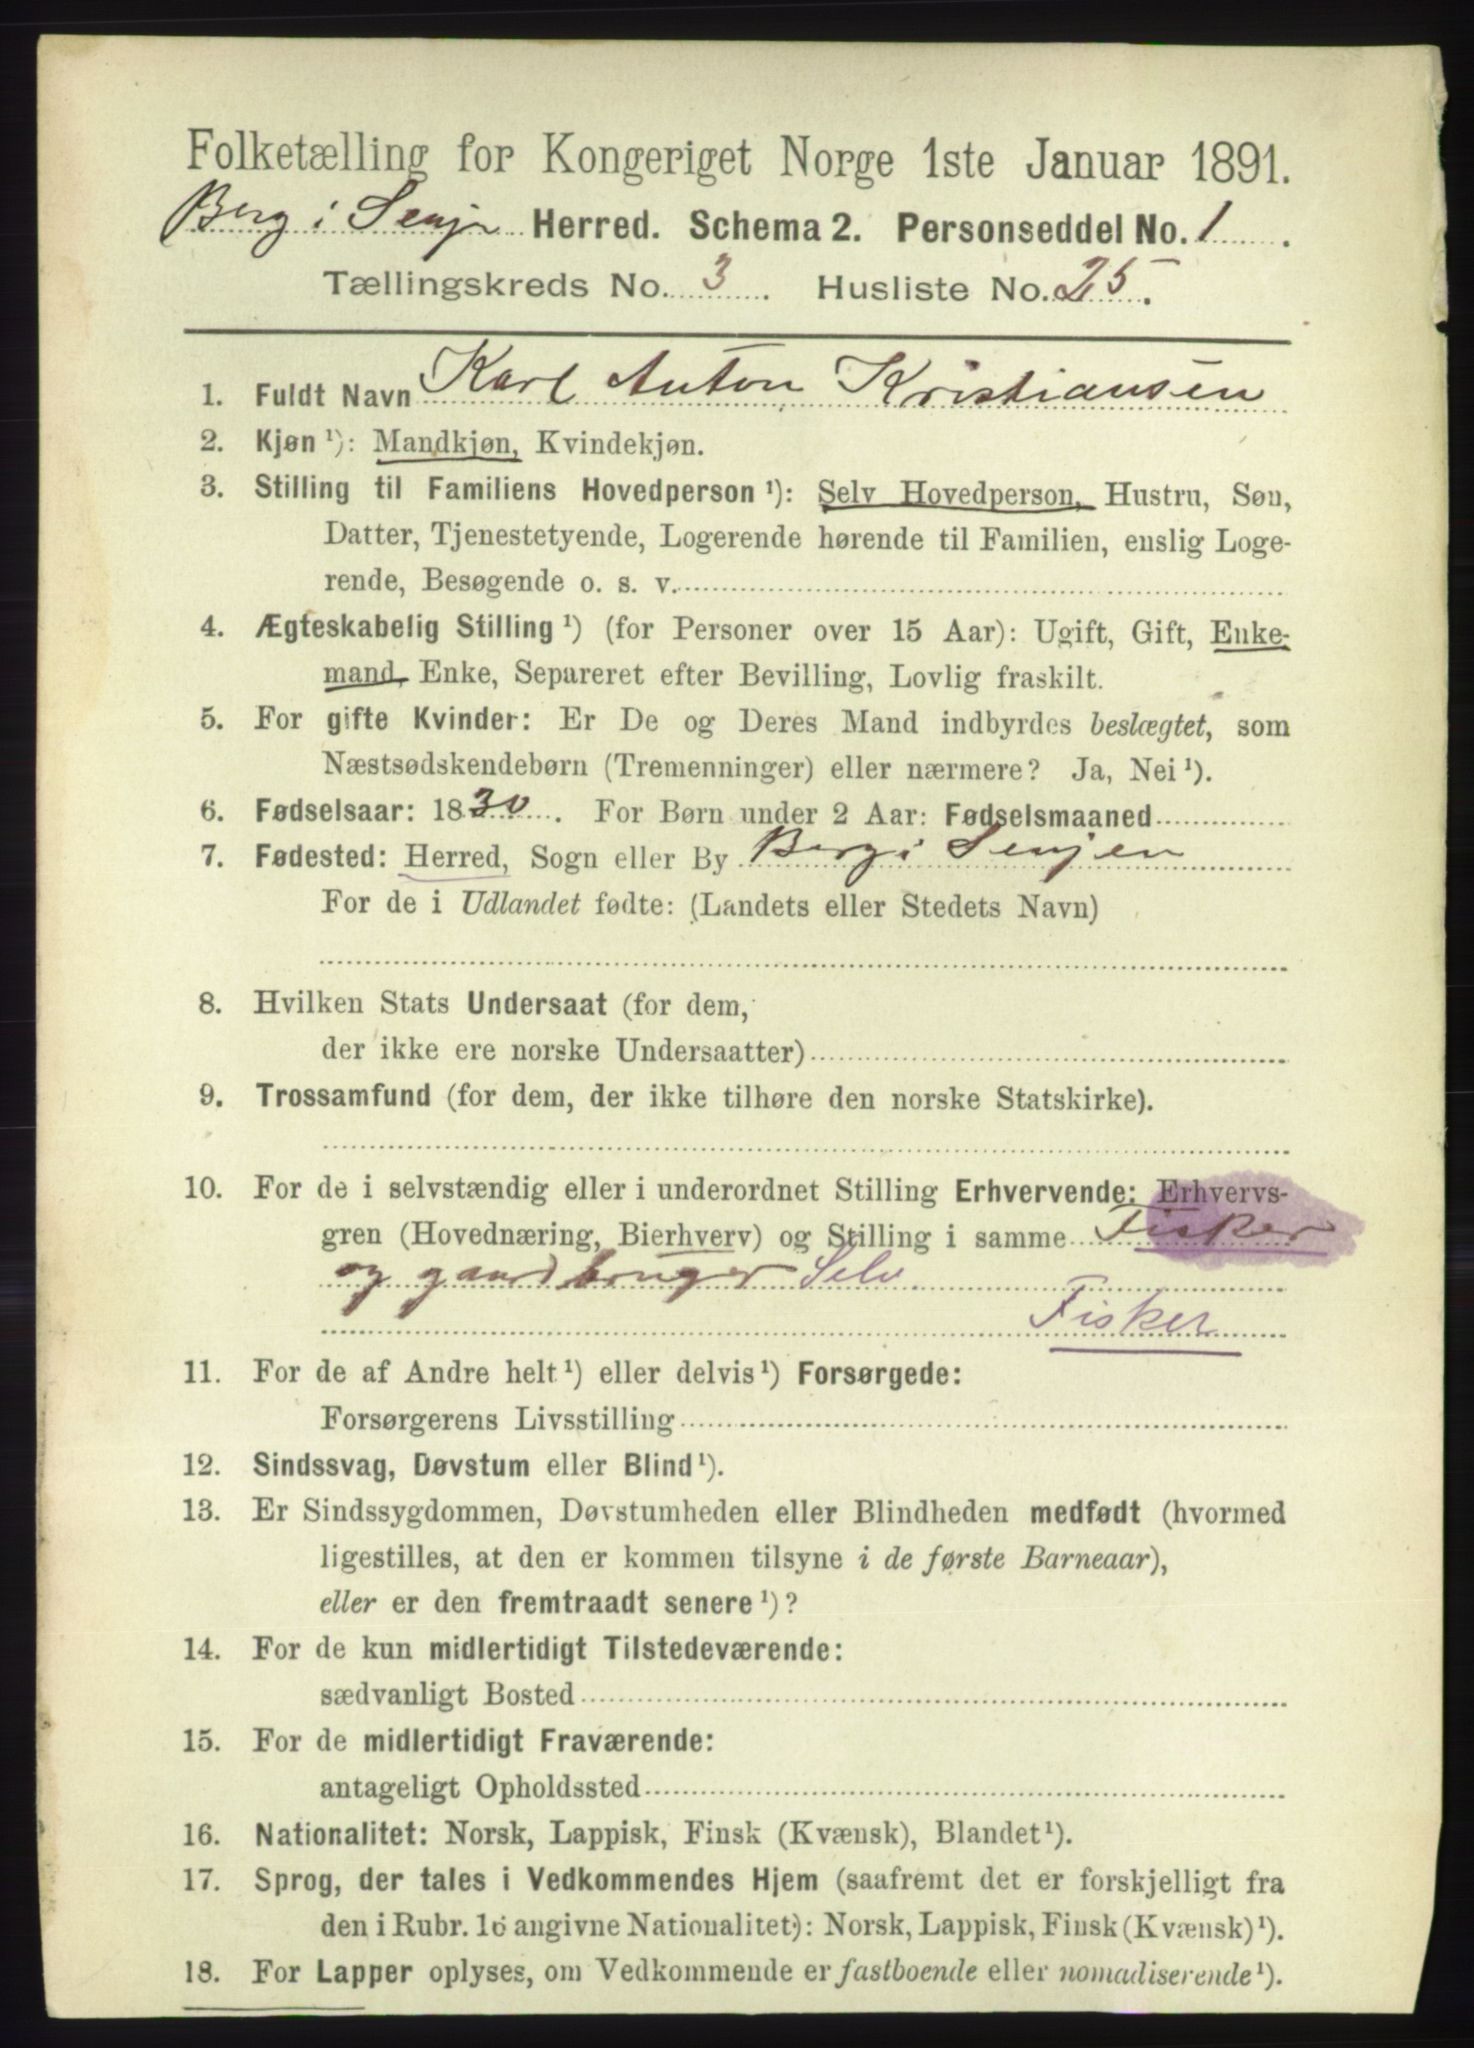 Folketælling for Kongeriget Norge 1ste Januar 1891.
Berg i Senjen Herred. Schema 2. Personseddel No. 1.
Tællingskreds No. 3. Husliste No. 25.
1. Fuldt Navn Karl Anton Kristiansen
2. Kjøn ¹): Mandkjøn, Kvindekjøn.
3. Stilling til Familiens Hovedperson ¹): Selv Hovedperson, Hustru, Søn,
Datter, Tjenestetyende, Logerende hørende til Familien, enslig Loge-
rende, Besøgende o. s. v.
4. Ægteskabelig Stilling ¹) (for Personer over 15 Aar): Ugift, Gift, Enke-
mand, Enke, Separeret efter Bevilling, Lovlig fraskilt.
5. For gifte Kvinder: Er De og Deres Mand indbyrdes beslægtet, som
Næstsødskendebørn (Tremenninger) eller nærmere? Ja, Nei ¹).
6. Fødselsaar: 1830. For Børn under 2 Aar: Fødselsmaaned
7. Fødested: Herred, Sogn eller By Berg i Senjen
For de i Udlandet fødte: (Landets eller Stedets Navn)
8. Hvilken Stats Undersaat (for dem,
der ikke ere norske Undersaatter)
9. Trossamfund (for dem, der ikke tilhøre den norske Statskirke).
10. For de i selvstændig eller i underordnet Stilling Erhvervende: Erhvervs-
gren (Hovednæring, Bierhverv) og Stilling i samme Fisker
og gaardbruger Selv
Fisker
11. For de af Andre helt ¹) eller delvis ¹) Forsørgede:
Forsørgerens Livsstilling
12. Sindssvag, Døvstum eller Blind ¹).
13. Er Sindssygdommen, Døvstumheden eller Blindheden medfødt (hvormed
ligestilles, at den er kommen tilsyne i de første Barneaar),
eller er den fremtraadt senere ¹)?
14. For de kun midlertidigt Tilstedeværende:
sædvanligt Bosted
15. For de midlertidigt Fraværende:
antageligt Opholdssted
16. Nationalitet: Norsk, Lappisk, Finsk (Kvænsk), Blandet ¹).
17. Sprog, der tales i Vedkommendes Hjem (saafremt det er forskjelligt fra
den i Rubr. 16 angivne Nationalitet): Norsk, Lappisk, Finsk (Kvænsk) ¹).
18. For Lapper oplyses, om Vedkommende er fastboende eller nomadiserende ¹).